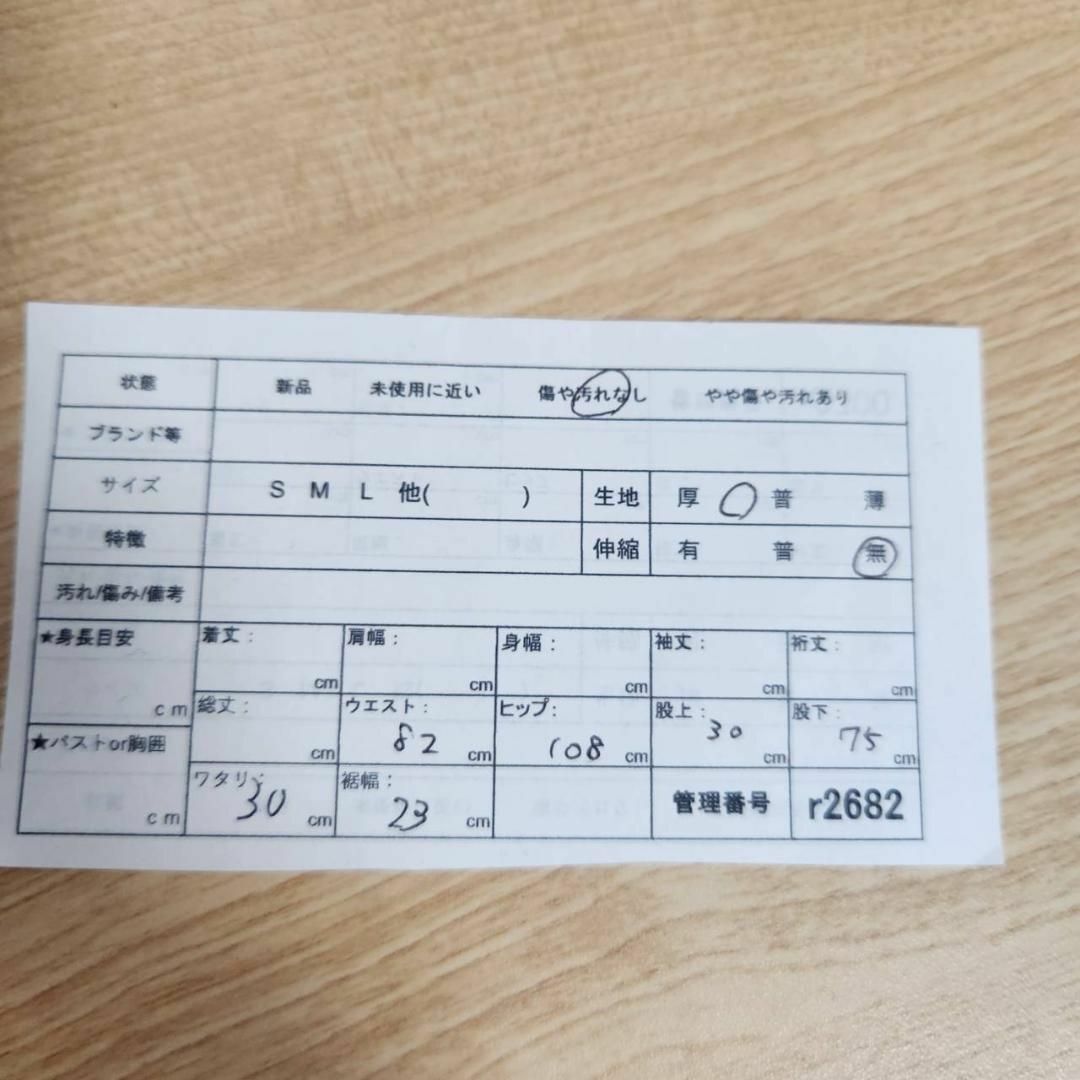 状態 新品 未使用に近い 傷や汚れなし やや傷や汚れあり
ブランド等
サイズ S M L 他( ) 生地 厚 普 薄
特徴 伸縮 有 普 無
汚れ/傷み/備考
★身長目安 cm 着丈: cm 肩幅: cm 身幅: cm 袖丈: cm 裄丈: cm
総丈: cm ウエスト: 82 cm ヒップ: 108 cm 股上: 30 cm 股下: 75 cm
★バストor胸囲 cm ワタリ: 30 cm 裾幅: 23 cm 管理番号 r2682